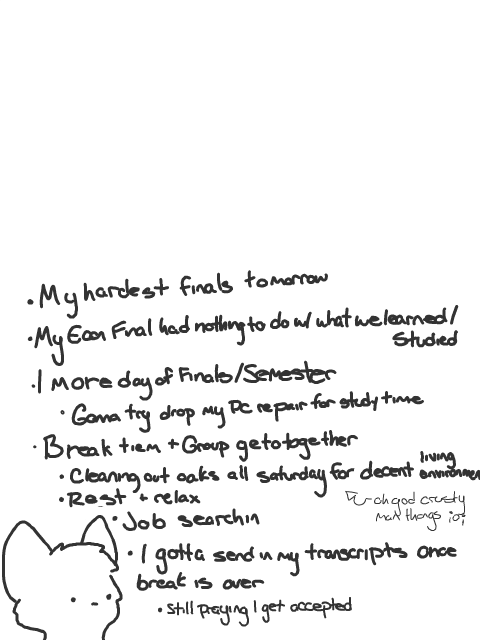 • My hardest finals tomorrow
• My Econ Final had nothing to do w/ what we learned/
Studied
• 1 more day of Finals/Semester
• Gonna try drop my PC repair for study time
• Break tiem + Group getotogether
• Cleaning out oaks all saturday for decent living environmen
• Rest + relax
oh god crusty
man things ;o;
• Job searchin
• I gotta send in my transcripts once
break is over
• still praying I get accepted